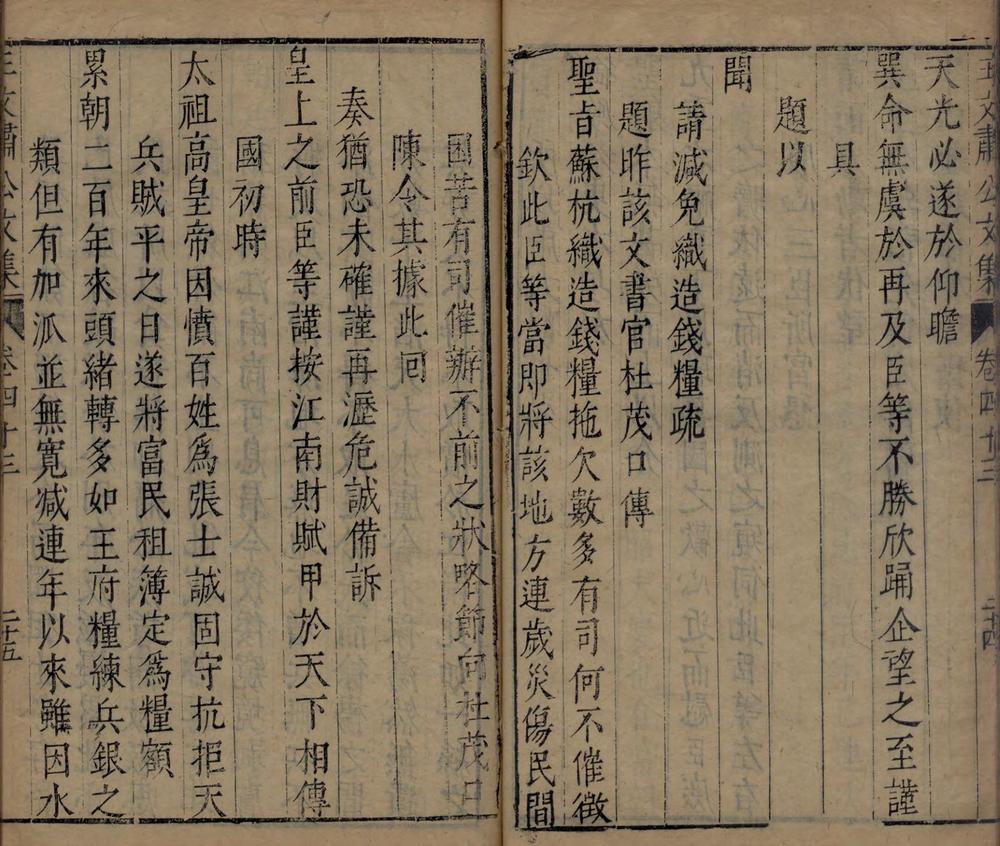 王文肅公文集 卷四十三 二十四
天光必遂於仰瞻
巽命無虞於再及臣等不勝欣踊企望之至謹
具
題以
聞
請減免織造錢糧疏
題昨該文書官杜茂口傳
聖旨蘇杭織造錢糧拖欠數多有司何不催徵
欽此臣等當即將該地方連歲災傷民間
困苦有司催辦不前之狀略節向杜茂口
陳令其據此回
奏猶恐未確謹再瀝危誠備訴
皇上之前臣等謹按江南財賦甲於天下相傳
國初時
太祖高皇帝因憤百姓為張士誠固守抗拒天
兵賊平之日遂將富民租簿定為糧額
累朝二百年來頭緒轉多如王府糧練兵銀之
類但有加派並無寬减連年以來雖因水
王文肅公文集 卷四十三 二十五